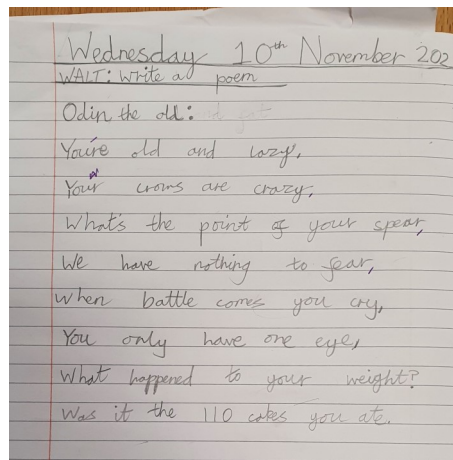 Wednesday 10th November 202
WALT: Write a poem
Odin the old:
You're old and lazy,
Your crows are crazy,
What's the point of your spear,
We have nothing to fear,
When battle comes you cry,
You only have one eye,
What happened to your weight?
Was it the 110 cakes you ate.